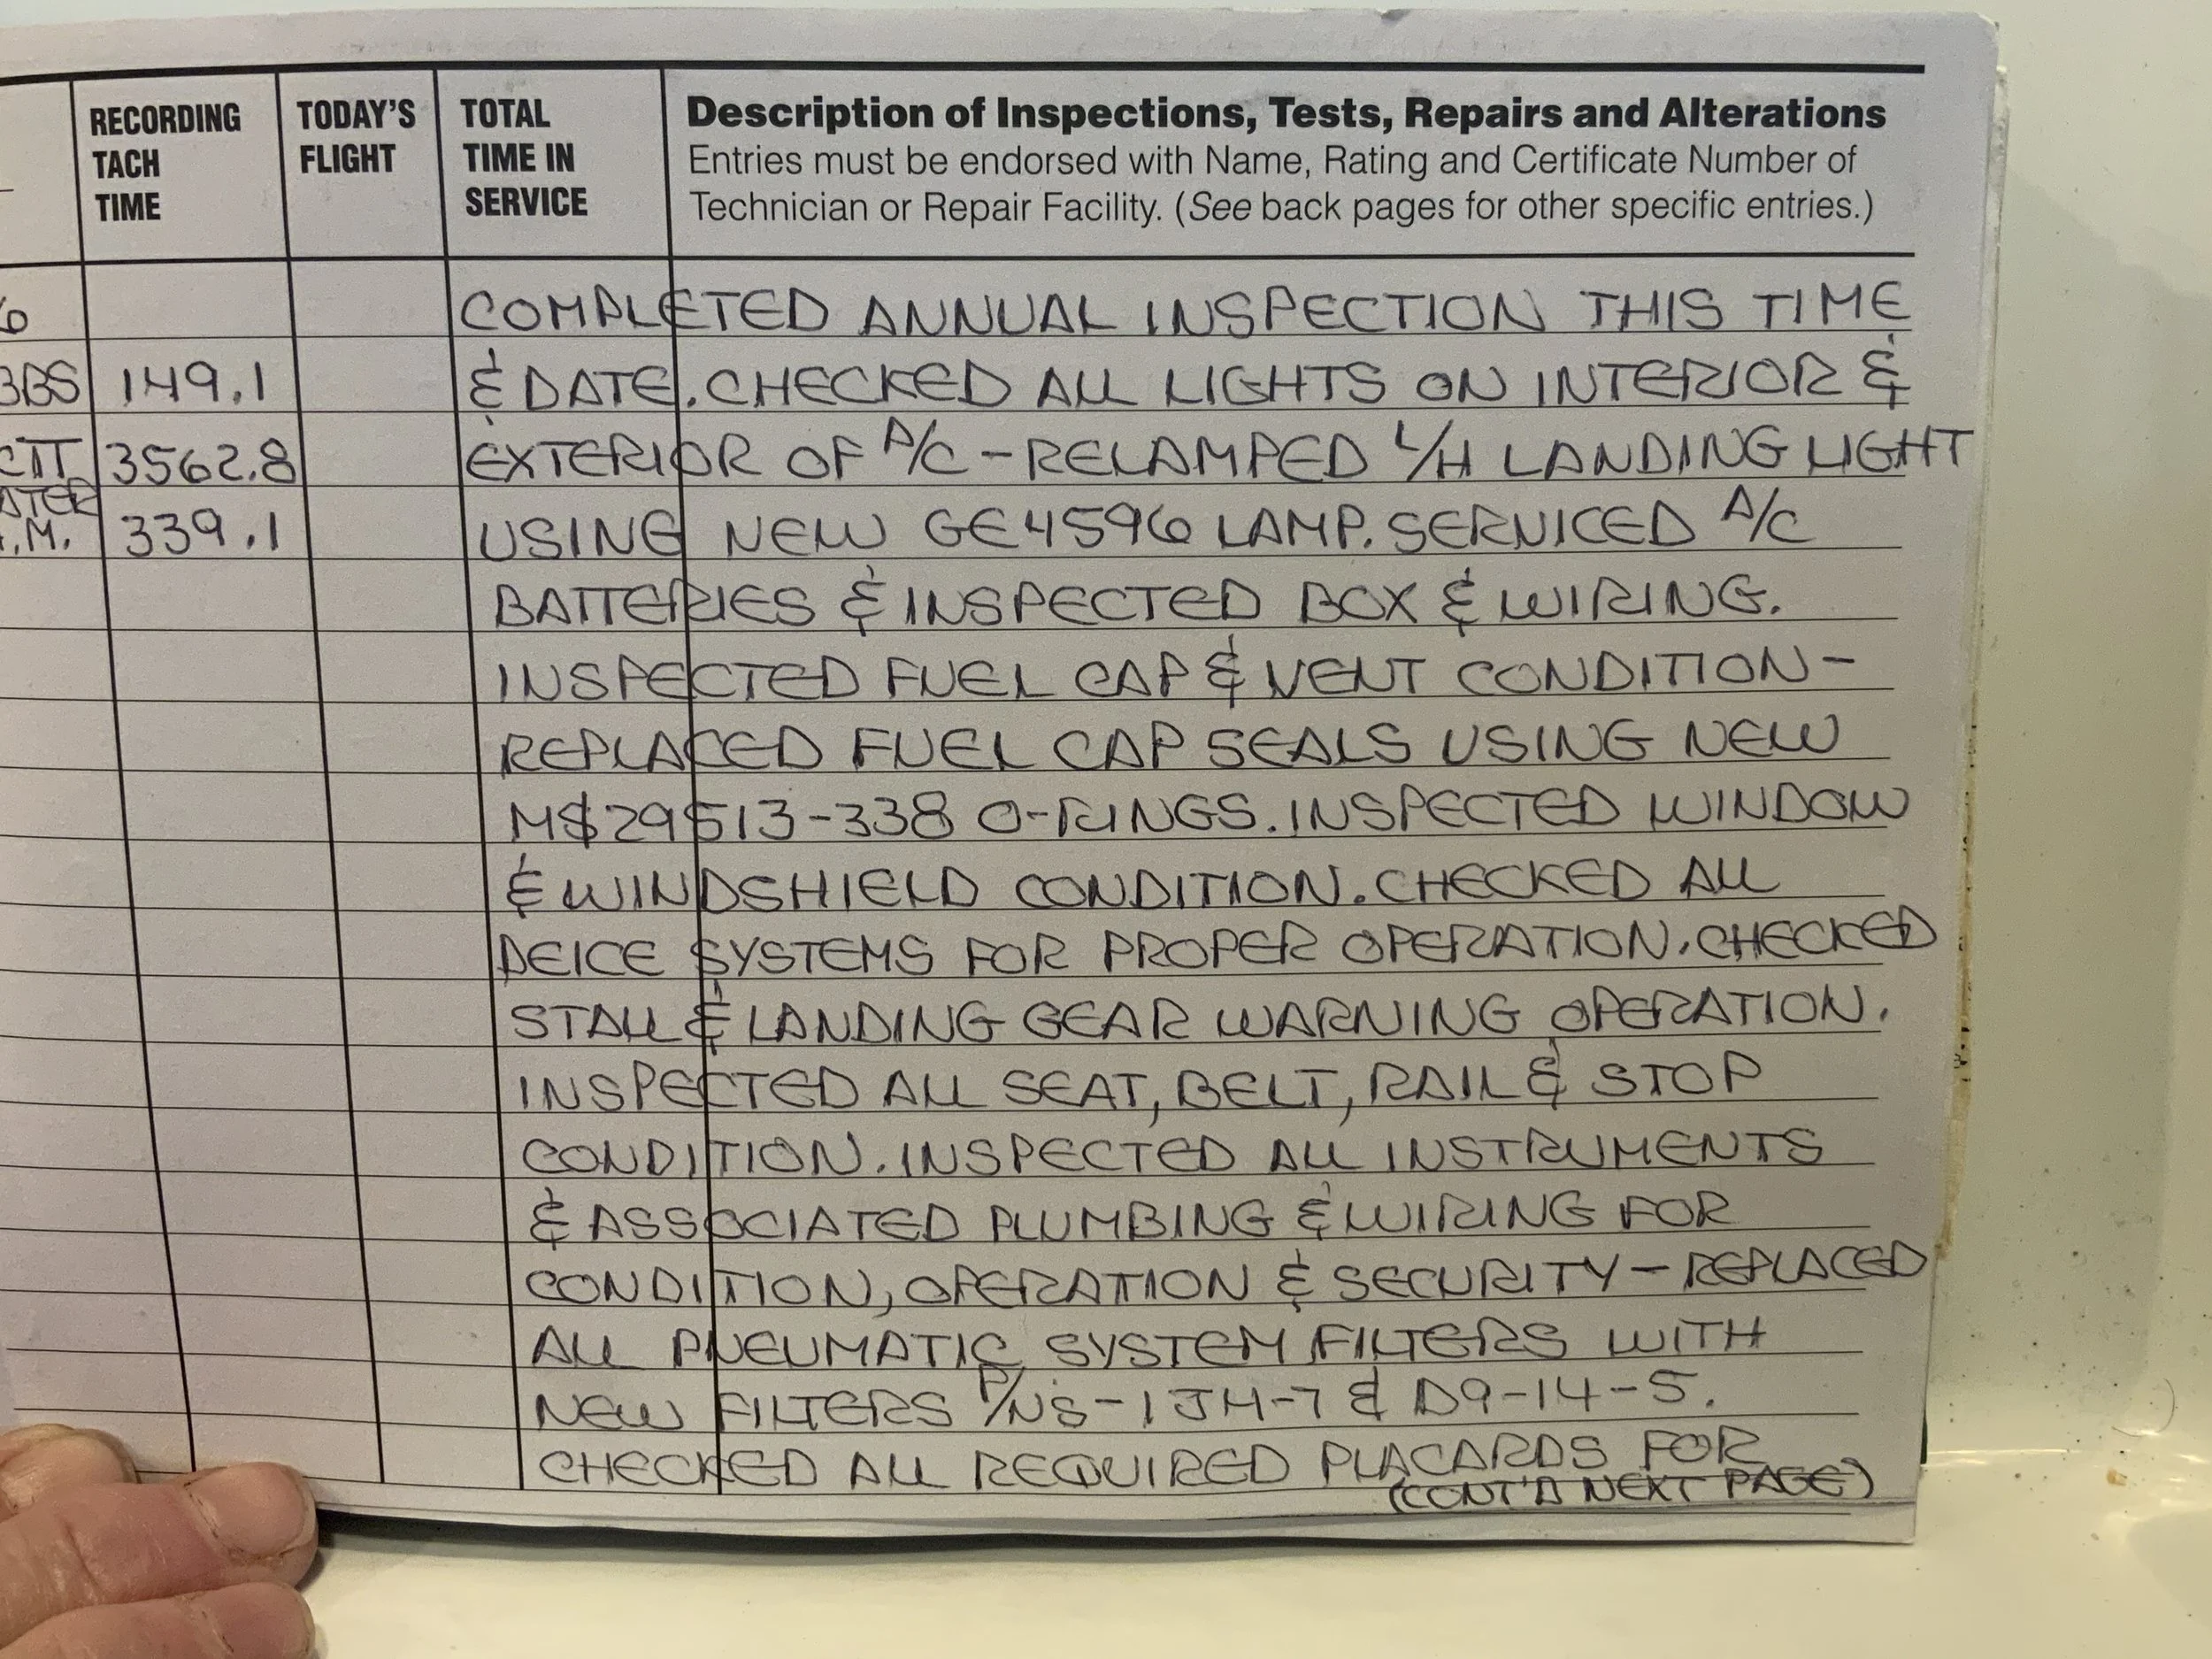 RECORDING TACH TIME
TODAY'S FLIGHT
TOTAL TIME IN SERVICE
Description of Inspections, Tests, Repairs and Alterations
Entries must be endorsed with Name, Rating and Certificate Number of
Technician or Repair Facility. (See back pages for other specific entries.)
COMPLETED ANNUAL INSPECTION THIS TIME
149.1 & DATE. CHECKED ALL LIGHTS ON INTERIOR &
3562.8 EXTERIOR OF A/C - RELAMPED L/H LANDING LIGHT
.M. 339.1 USING NEW GE4596 LAMP. SERVICED A/C
BATTERIES & INSPECTED BOX & WIRING.
INSPECTED FUEL CAP & VENT CONDITION -
REPLACED FUEL CAP SEALS USING NEW
MS29513-338 O-RINGS. INSPECTED WINDOW
& WINDSHIELD CONDITION. CHECKED ALL
DEICE SYSTEMS FOR PROPER OPERATION. CHECKED
STALL & LANDING GEAR WARNING OPERATION.
INSPECTED ALL SEAT, BELT, RAIL & STOP
CONDITION. INSPECTED ALL INSTRUMENTS
& ASSOCIATED PLUMBING & WIRING FOR
CONDITION, OPERATION & SECURITY - REPLACED
ALL PNEUMATIC SYSTEM FILTERS WITH
NEW FILTERS P/NS - 1JH-7 & D9-14-5.
CHECKED ALL REQUIRED PLACARDS FOR
(CONT'D NEXT PAGE)